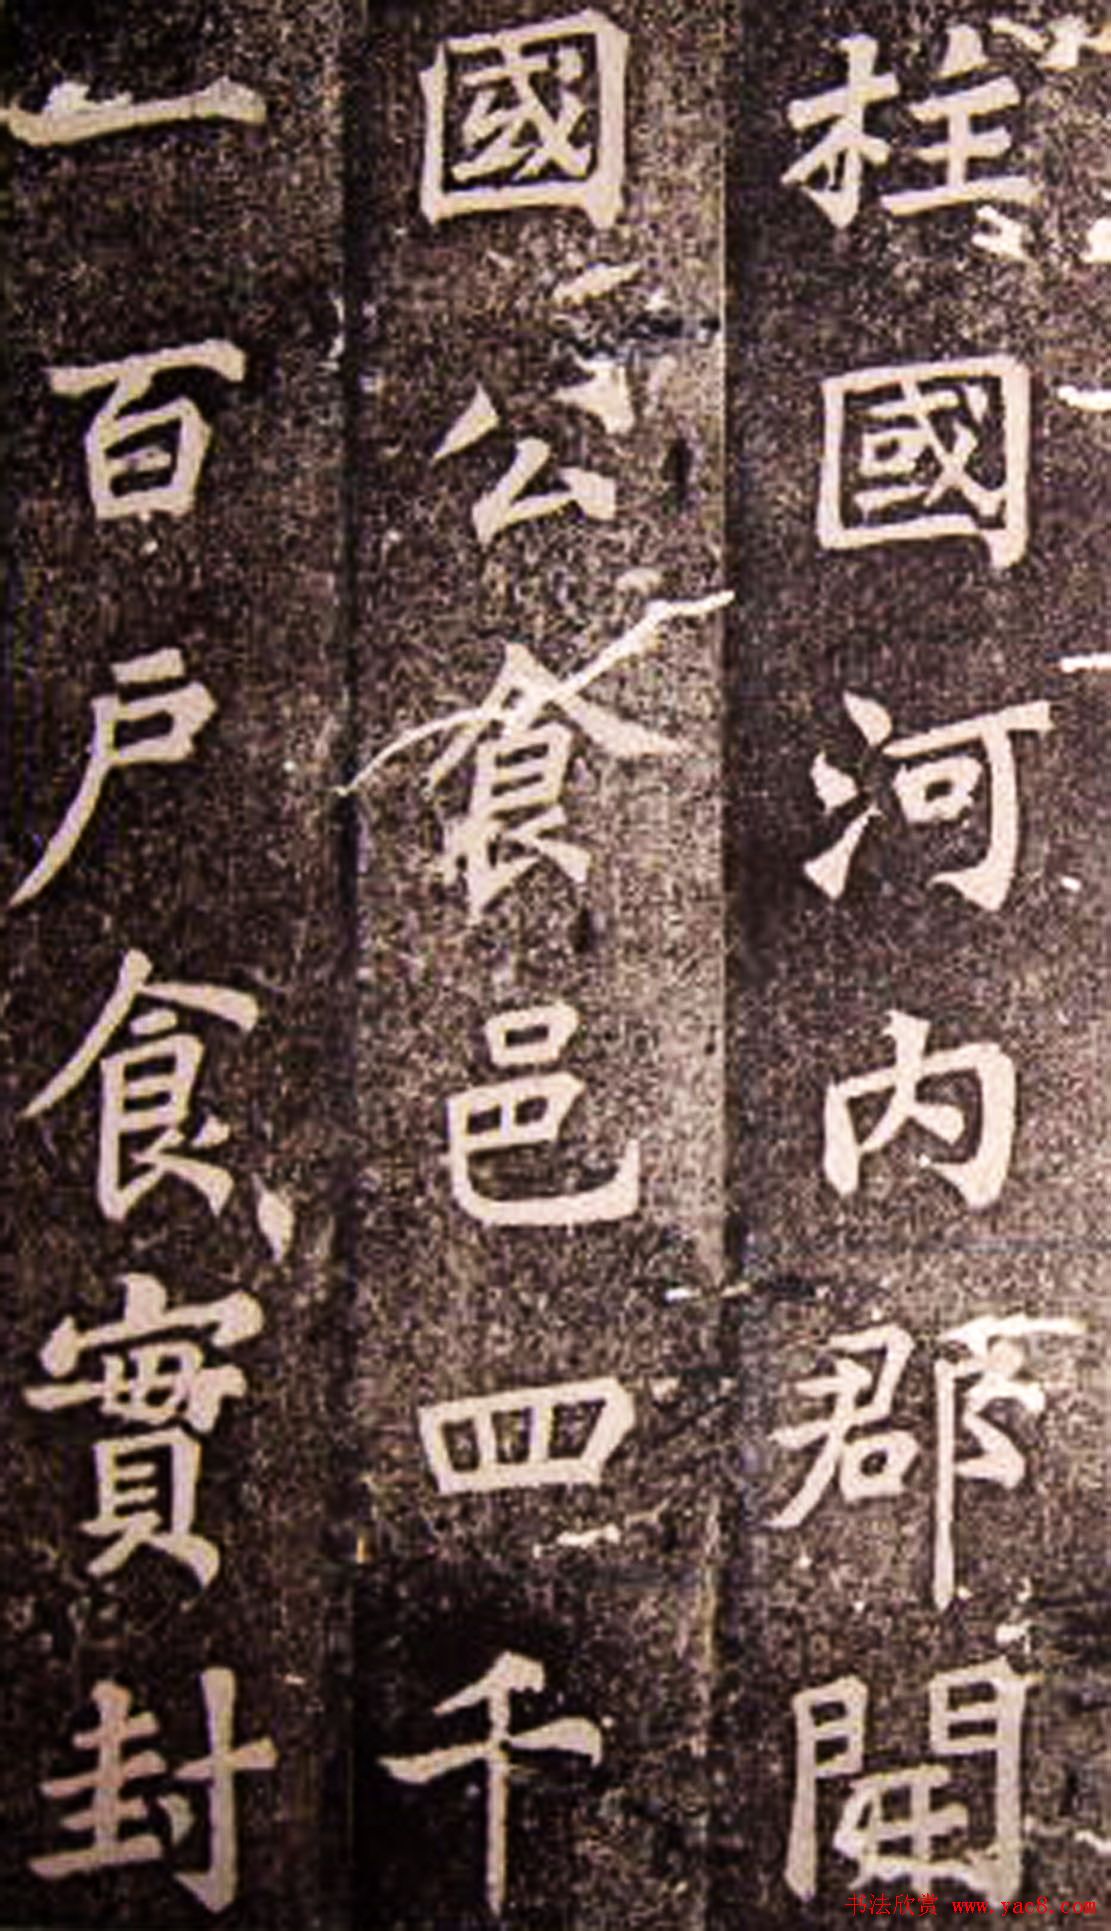 柱國河内郡開
國公食邑四千
一百戶食實封
书法欣赏 www.yac8.com